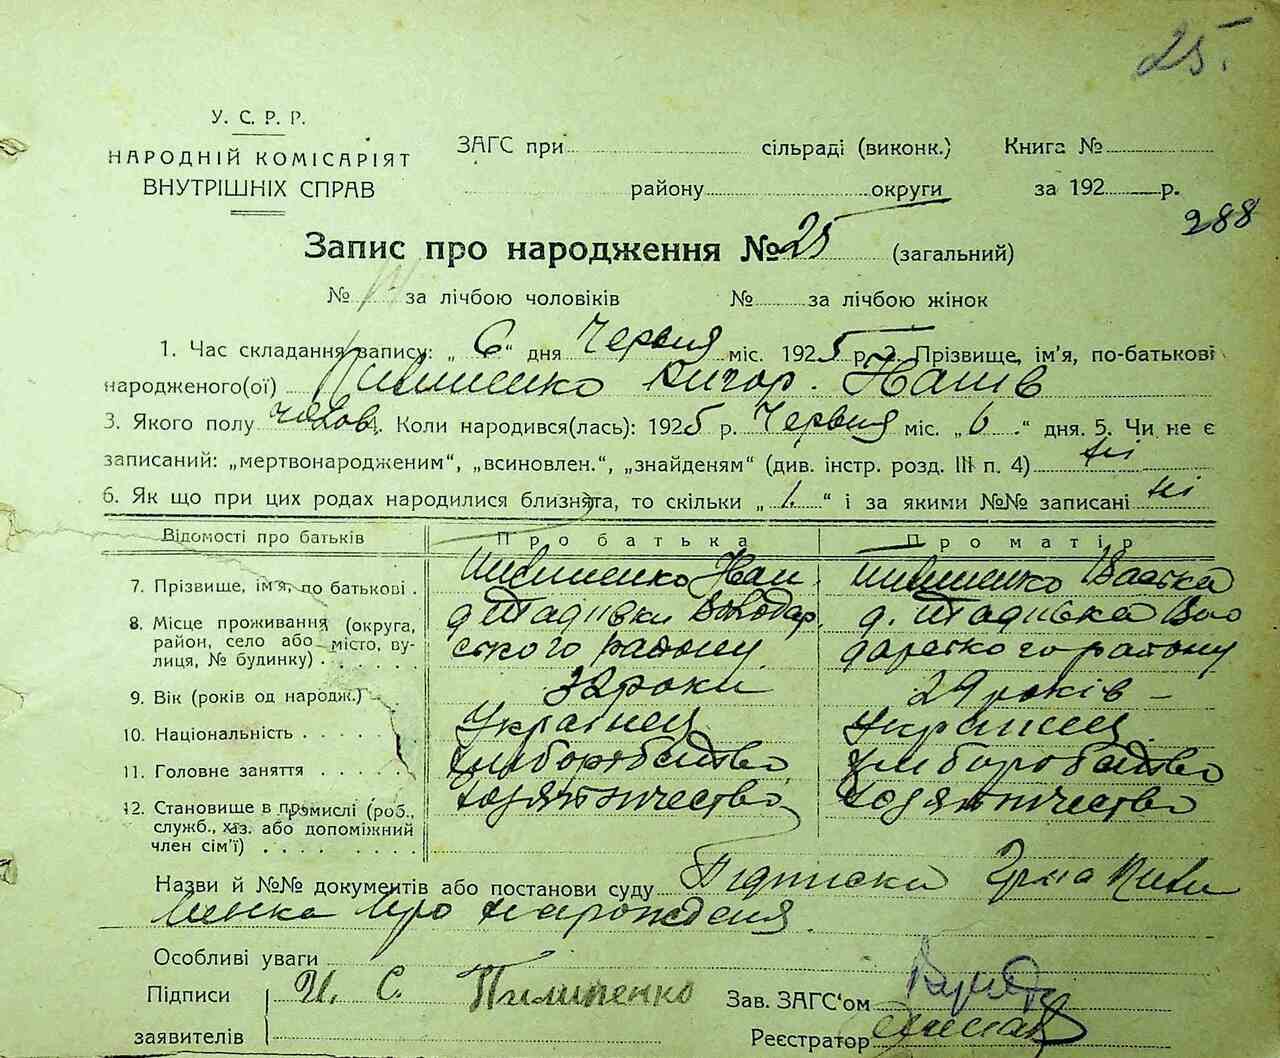 25.
У. С. Р. Р.
НАРОДНІЙ КОМІСАРІЯТ
ВНУТРІШНІХ СПРАВ
ЗАГС при сільраді (виконк.) Книга №
району округи за 192 р.
288
Запис про народження № 25 (загальний)
№ за лічбою чоловіків № за лічбою жінок
1. Час складання запису: „ 6 “ дня Червня міс. 1925 р. 2. Прізвище, ім’я, по-батькові
народженого(ої) Пилипенко
3. Якого полу чолов. 4. Коли народився(лась): 1925 р. Червня міс. „ 6 “ дня. 5. Чи не є
записаний: „мертвонародженим“, „всиновлен.“, „знайденям“ (див. інстр. розд. III п. 4) ні
6. Як що при цих родах народилися близнята, то скільки „ 1. “ і за якими №№ записані ні
Відомості про батьків Про батька Про матір
7. Прізвище, ім’я, по батькові . Пилипенко Пилипенко
8. Місце проживання (округа, район, село або місто, вулиця, № будинку) . . . . . д Тадіївки Володар. ского району д. Тадіївка Воло дарского району
9. Вік (років од народж.) 32 роки 29 років
10. Національність . . . . . Українец Украинец
11. Головне заняття . . . . . хлиборобство хлиборобство
12. Становище в промислі (роб., служб., хаз. або допоміжний член сім’ї) . . . . . . .
Назви й №№ документів або постанови суду Підписка Пили
пенка про нарождения
Особливі уваги
Підписи И. С. Пилипенко Зав. ЗАГС’ом
заявителів Реєстратор